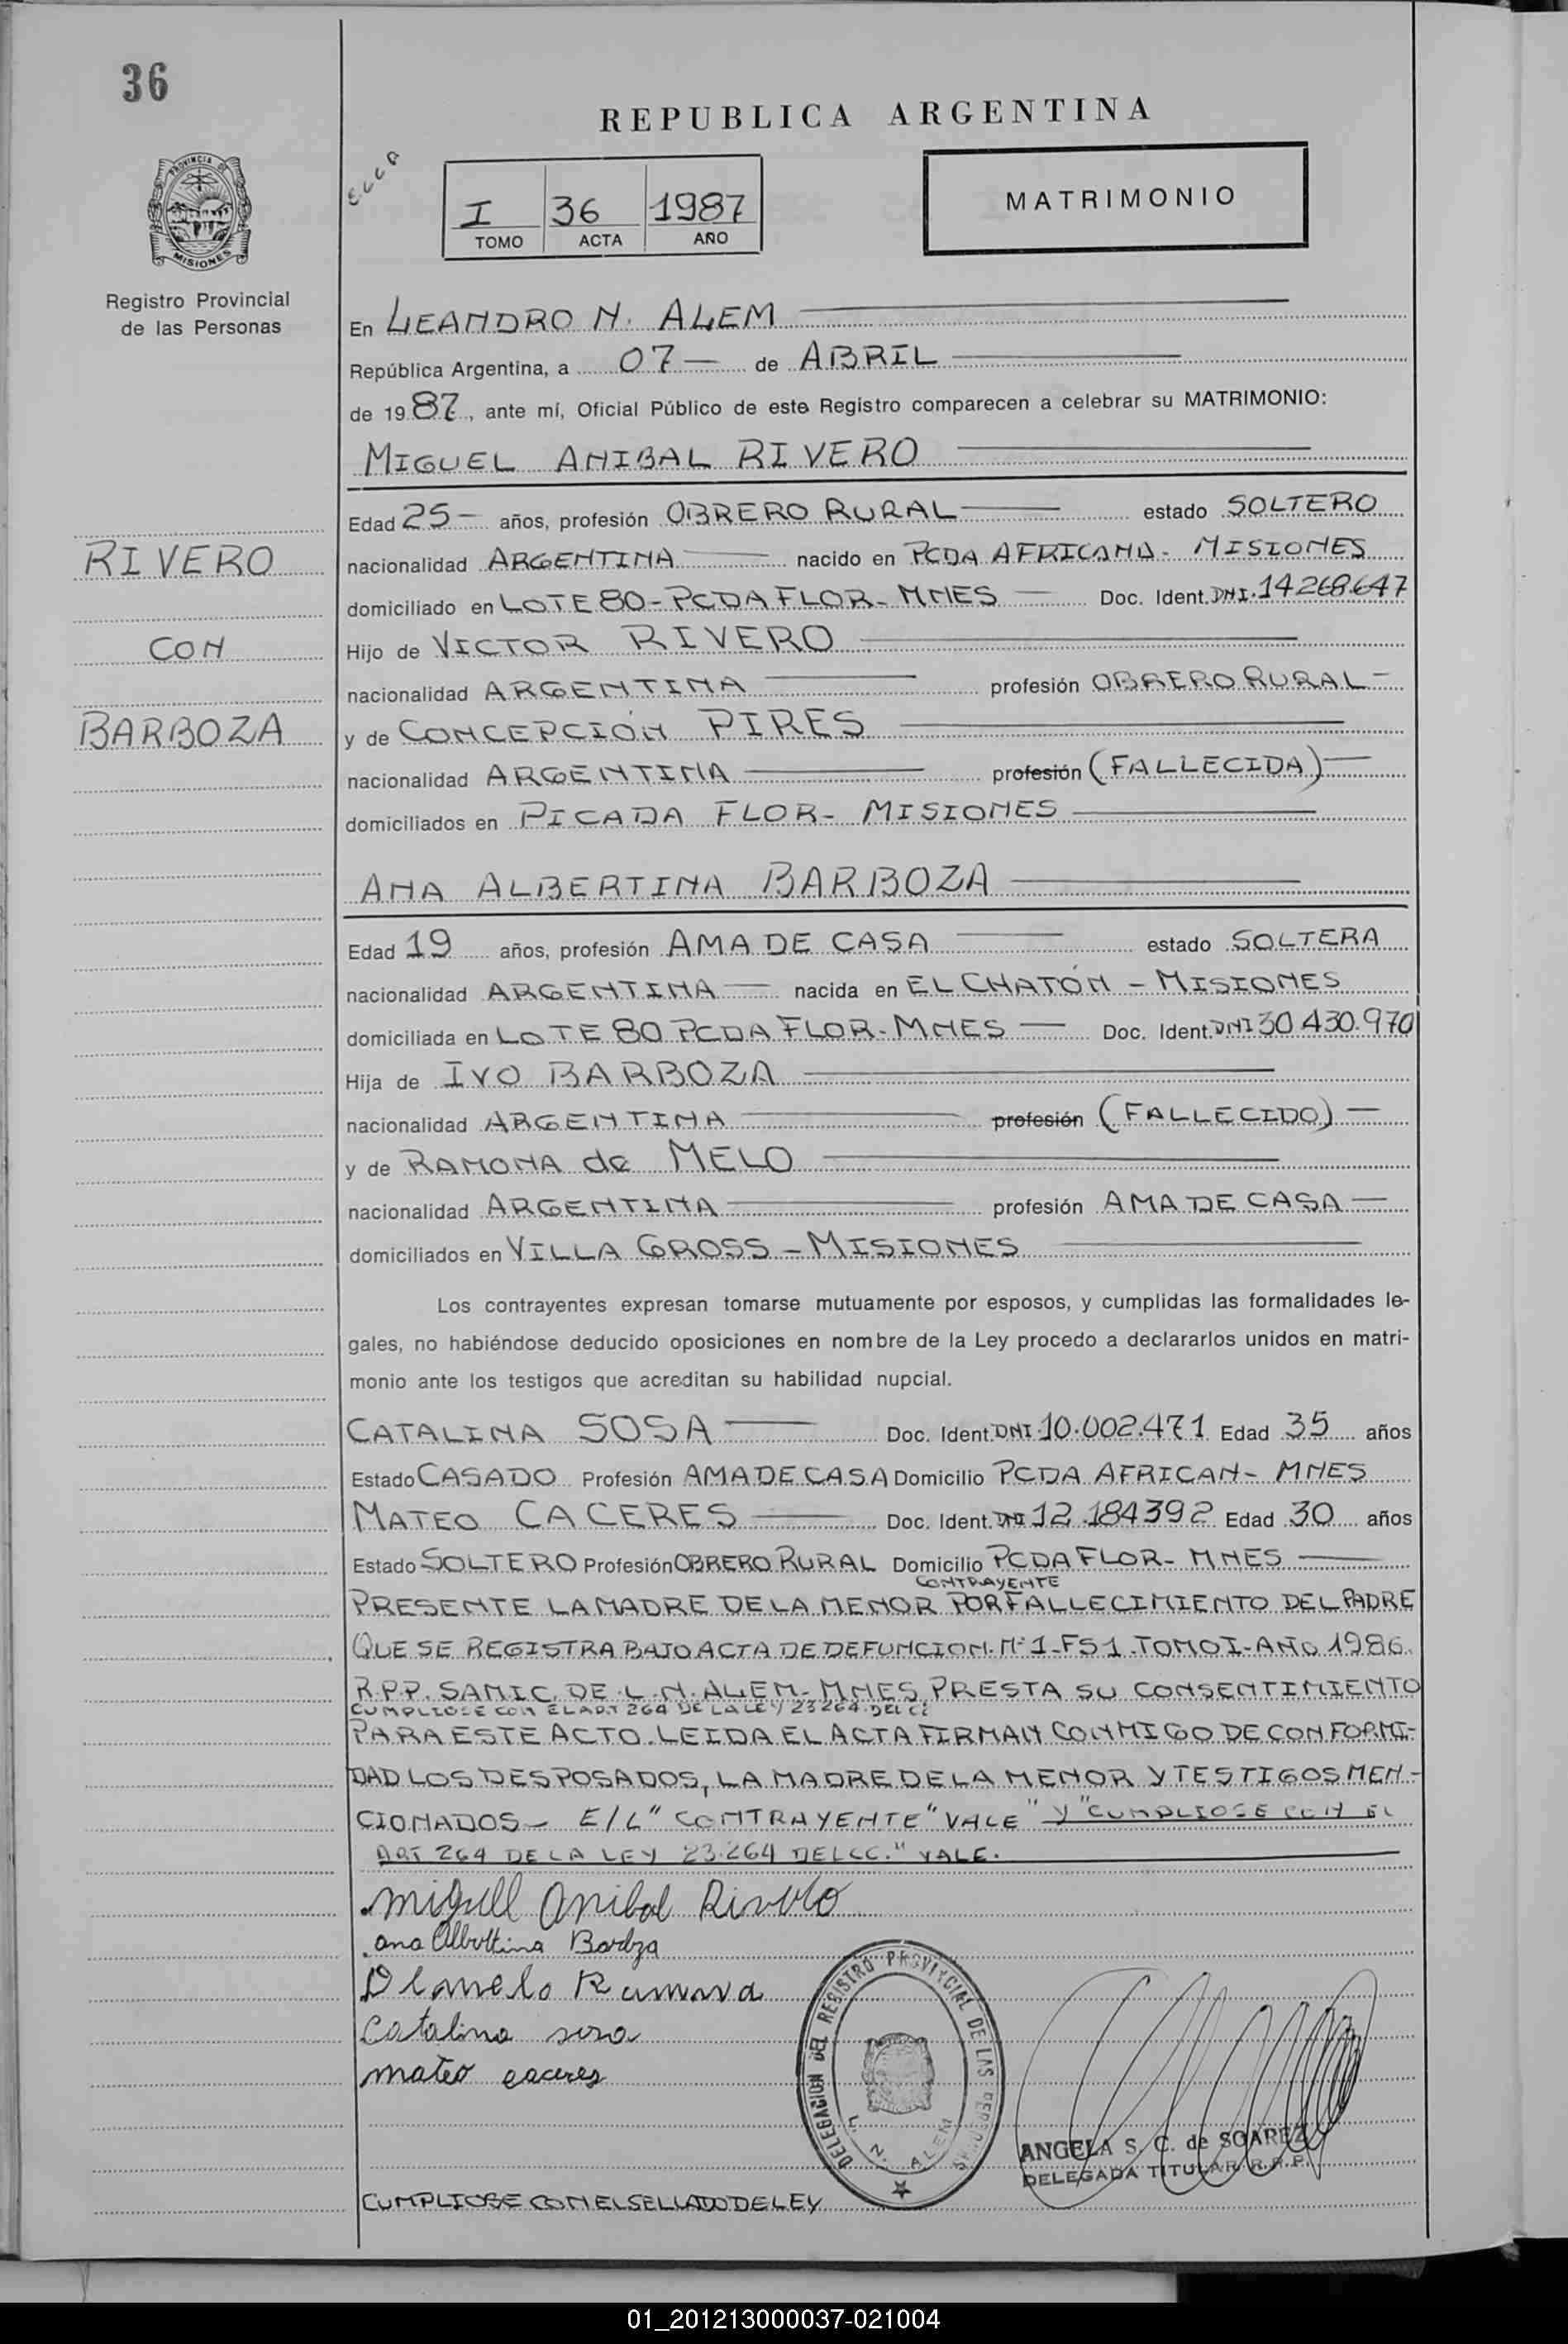 36
REPUBLICA ARGENTINA
PROVINCIA DE
MISIONES
I 36 1987
TOMO ACTA AÑO
MATRIMONIO
Registro Provincial
de las Personas
En LEANDRO N. ALEM
República Argentina, a 07 — de ABRIL
de 1987, ante mí, Oficial Público de este Registro comparecen a celebrar su MATRIMONIO:
MIGUEL ANIBAL RIVERO
Edad 25 — años, profesión OBRERO RURAL — estado SOLTERO
RIVERO
nacionalidad ARGENTINA — nacido en PCDA AFRICANA - MISIONES
domiciliado en LOTE 80 - PCDA FLOR - MNES — Doc. Ident. DNI. 14268.647
CON
Hijo de VICTOR RIVERO
nacionalidad ARGENTINA — profesión OBRERO RURAL —
BARBOZA
y de CONCEPCIÓN PIRES
nacionalidad ARGENTINA — profesión (FALLECIDA) —
domiciliados en PICADA FLOR - MISIONES
ANA ALBERTINA BARBOZA
Edad 19 años, profesión AMA DE CASA — estado SOLTERA
nacionalidad ARGENTINA — nacida en EL CHATÓN - MISIONES
domiciliada en LOTE 80 PCDA FLOR - MNES — Doc. Ident. DNI 30.430.970
Hija de IVO BARBOZA
nacionalidad ARGENTINA — profesión (FALLECIDO) —
y de RAMONA de MELO
nacionalidad ARGENTINA — profesión AMA DE CASA —
domiciliados en VILLA GROSS - MISIONES
Los contrayentes expresan tomarse mutuamente por esposos, y cumplidas las formalidades le-
gales, no habiéndose deducido oposiciones en nombre de la Ley procedo a declararlos unidos en matri-
monio ante los testigos que acreditan su habilidad nupcial.
CATALINA SOSA — Doc. Ident. DNI 10.002.471 Edad 35 años
Estado CASADO Profesión AMA DE CASA Domicilio PCDA AFRICAN - MNES
MATEO CACERES — Doc. Ident. DNI 12.184392 Edad 30 años
Estado SOLTERO Profesión OBRERO RURAL Domicilio PCDA FLOR - MNES —
CONTRAYENTE
PRESENTE LA MADRE DE LA MENOR POR FALLECIMIENTO DEL PADRE
QUE SE REGISTRA BAJO ACTA DE DEFUNCION. Nº 1 - FS 1. TOMO I - AÑO 1986.
R.P.P. SAMIC. DE L.N. ALEM - MNES, PRESTA SU CONSENTIMIENTO
CUMPLIOSE CON EL ART 264 DE LA LEY 23264 DEL CC
PARA ESTE ACTO. LEIDA EL ACTA FIRMAN CONMIGO DE CONFORMI-
DAD LOS DESPOSADOS, LA MADRE DE LA MENOR Y TESTIGOS MEN-
CIONADOS - E/L "CONTRAYENTE" VALE" Y "CUMPLIOSE CON EL
ART 264 DE LA LEY 23.264 DEL CC." VALE.
Miguel Anibal Rivero
ana Albertina Barboza
D Lomelo Ramona
Catalina sosa
mateo caceres
DELEGACION DEL REGISTRO PROVINCIAL DE LAS PERSONAS
L. N. ALEM
ANGELA S. C. de SOAREZ
DELEGADA TITULAR R.P.P.
CUMPLIOSE CON EL SELLADO DE LEY
01_201213000037-021004